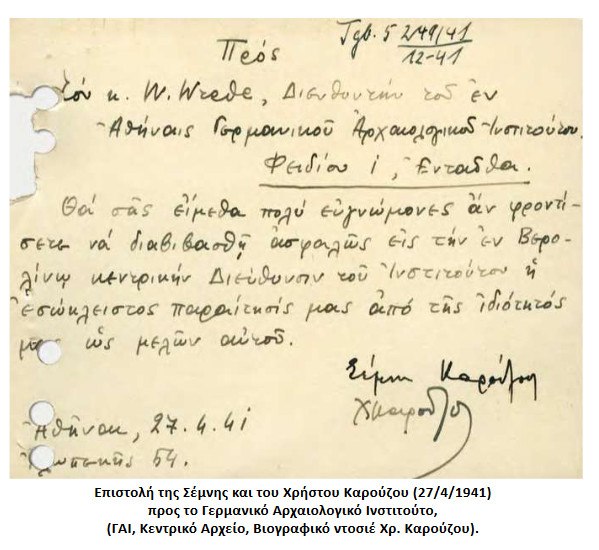 Πρὸς
Tgb. 5 249/41
12-41
Τὸν κ. W. Wrede, Διευθυντὴν τοῦ ἐν
Ἀθήναις Γερμανικοῦ Ἀρχαιολογικοῦ Ἰνστιτούτου.
Φειδίου 1, Ἐνταῦθα.
Θά σᾶς εἴμεθα πολὺ εὐγνώμονες ἂν φροντί-
σετε νὰ διαβιβασθῇ ἀσφαλῶς εἰς τὴν ἐν Βερο-
λίνῳ κεντρικὴν Διεύθυνσιν τοῦ Ἰνστιτούτου ἡ
ἐσώκλειστος παραίτησίς μας ἀπὸ τῆς ἰδιότητός
μας ὡς μελῶν αὐτοῦ.
Σέμνη Καρούζου
ΧΚαρούζος
Ἀθῆναι, 27.4.41
Ἀλωπεκῆς 54.
Επιστολή της Σέμνης και του Χρήστου Καρούζου (27/4/1941)
προς το Γερμανικό Αρχαιολογικό Ινστιτούτο,
(ΓΑΙ, Κεντρικό Αρχείο, Βιογραφικό ντοσιέ Χρ. Καρούζου).